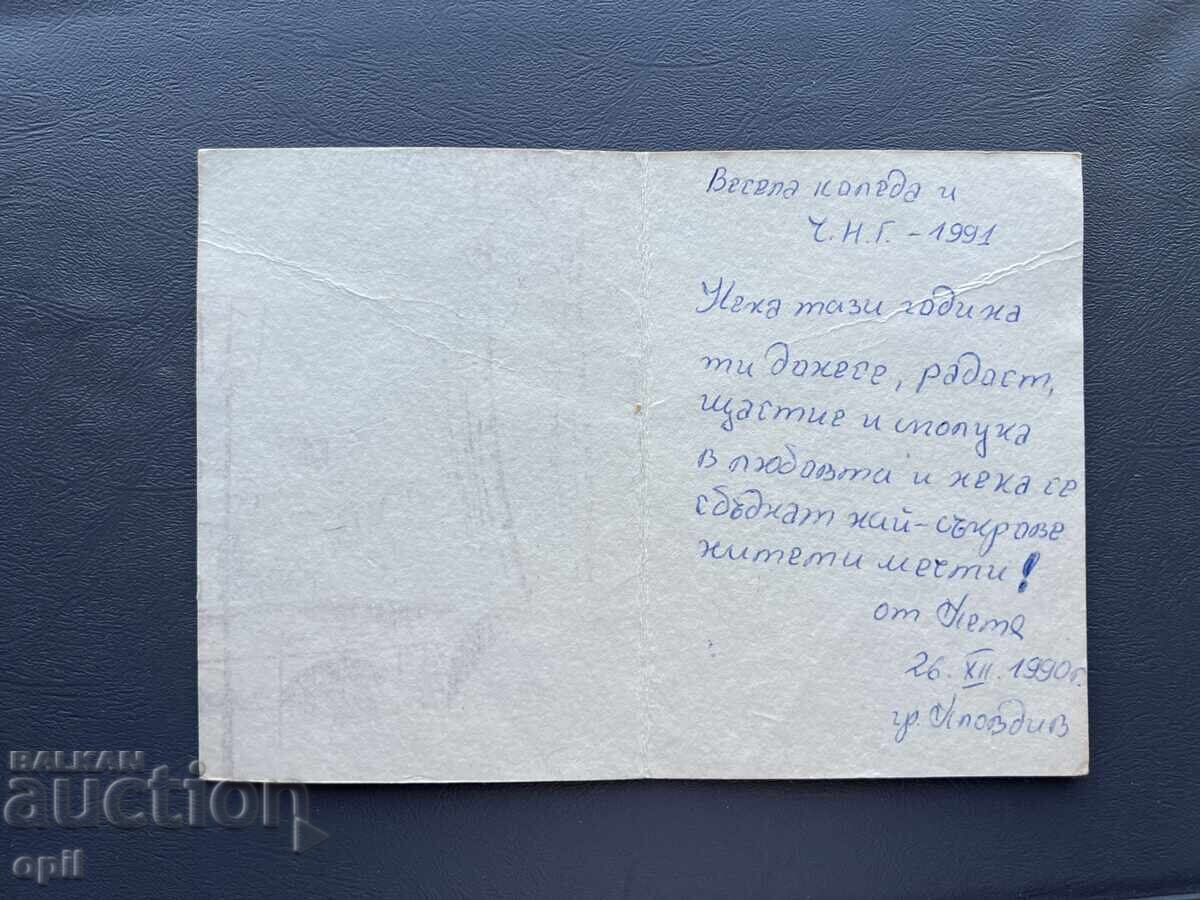 Весела коледа и
Ч.Н.Г. - 1991
Нека тази година
ти донесе, радост,
щастие и сполука
в любовта и нека се
сбъднат най-съкрове
нитети мечти!
от Петя
26. XII. 1990г.
гр. Пловдив
BALKAN
auction
opil